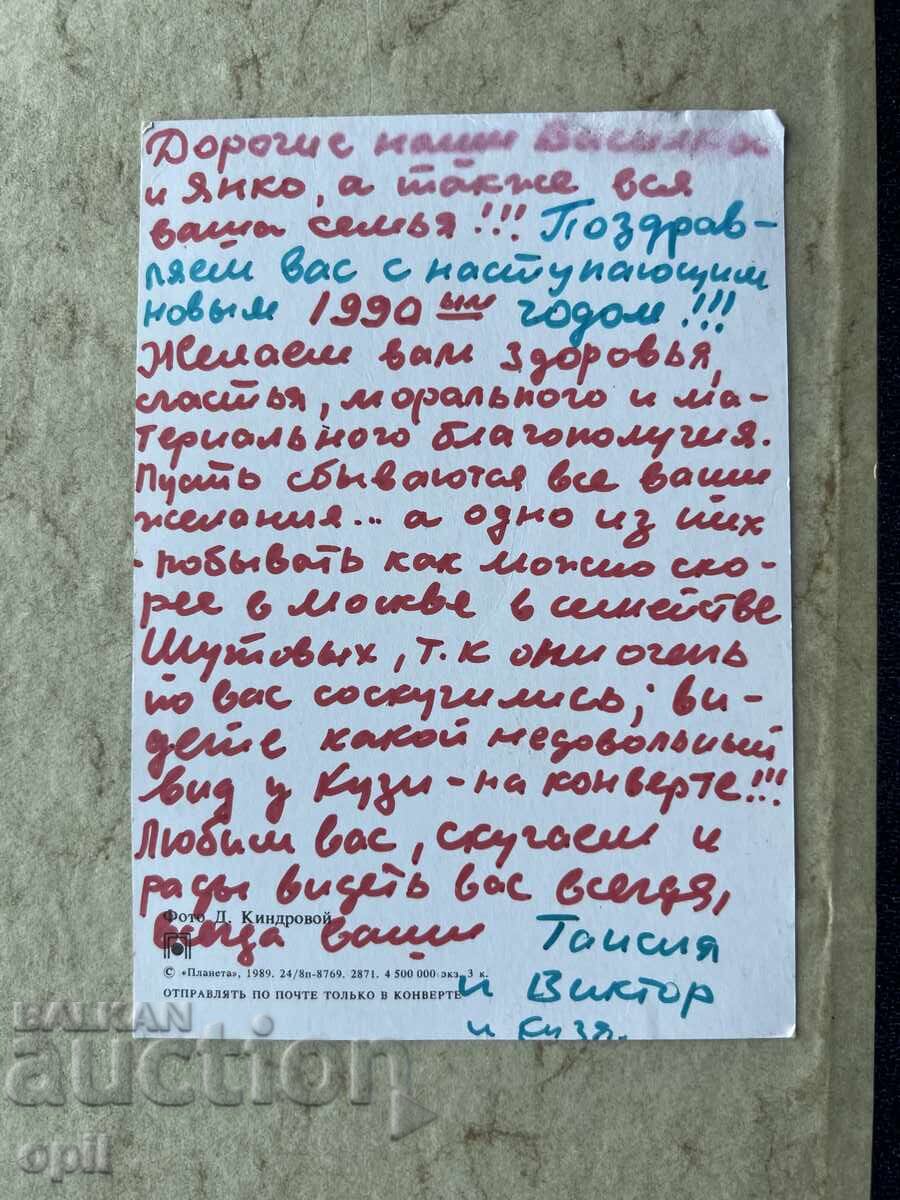 Дорогие наши Василка
и Янко, а также вся
ваша семья!!! Поздрав-
ляем вас с наступающим
новым 1990ым годом!!!
Желаем вам здоровья,
счастья, морального и ма-
териального благополучия.
Пусть сбываются все ваши
желания... а одно из них
- побывать как можно ско-
рее в Москве в семействе
Шутовых, т.к они очень
по вас соскучились; ви-
дете какой недовольный
вид у Кузи - на конверте!!!
Любим вас, скучаем и
рады видеть вас всегда,
Фото Д. Киндровой
всегда ваши Таисия
© «Планета», 1989. 24/8п-8769. 2871. 4 500 000 экз. 3 к.
и Виктор
ОТПРАВЛЯТЬ ПО ПОЧТЕ ТОЛЬКО В КОНВЕРТЕ
и Кузя.
BALKAN
auction
opil